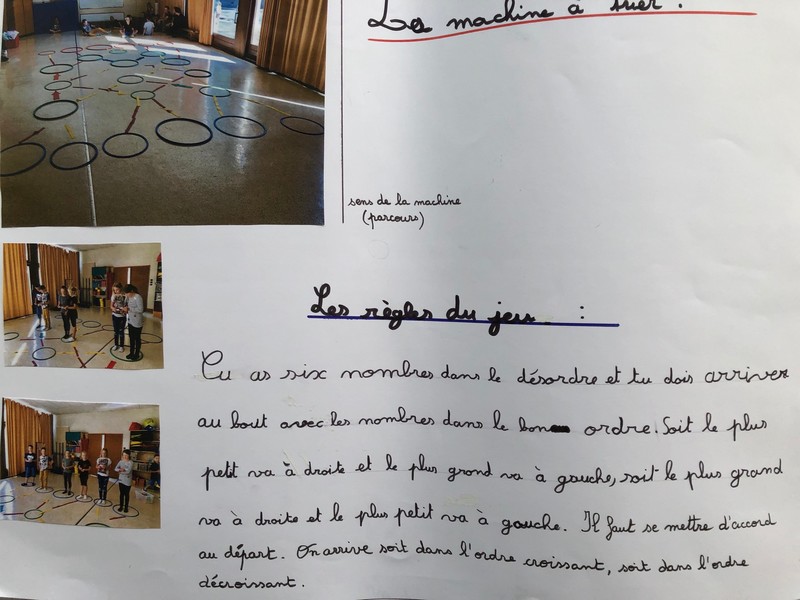 La machine à trier :
sens de la machine
(parcours)
Les règles du jeu :
Tu as six nombres dans le désordre et tu dois arriver
au bout avec les nombres dans le bon ordre. Soit le plus
petit va à droite et le plus grand va à gauche, soit le plus grand
va à droite et le plus petit va à gauche. Il faut se mettre d'accord
au départ. On arrive soit dans l'ordre croissant, soit dans l'ordre
décroissant.